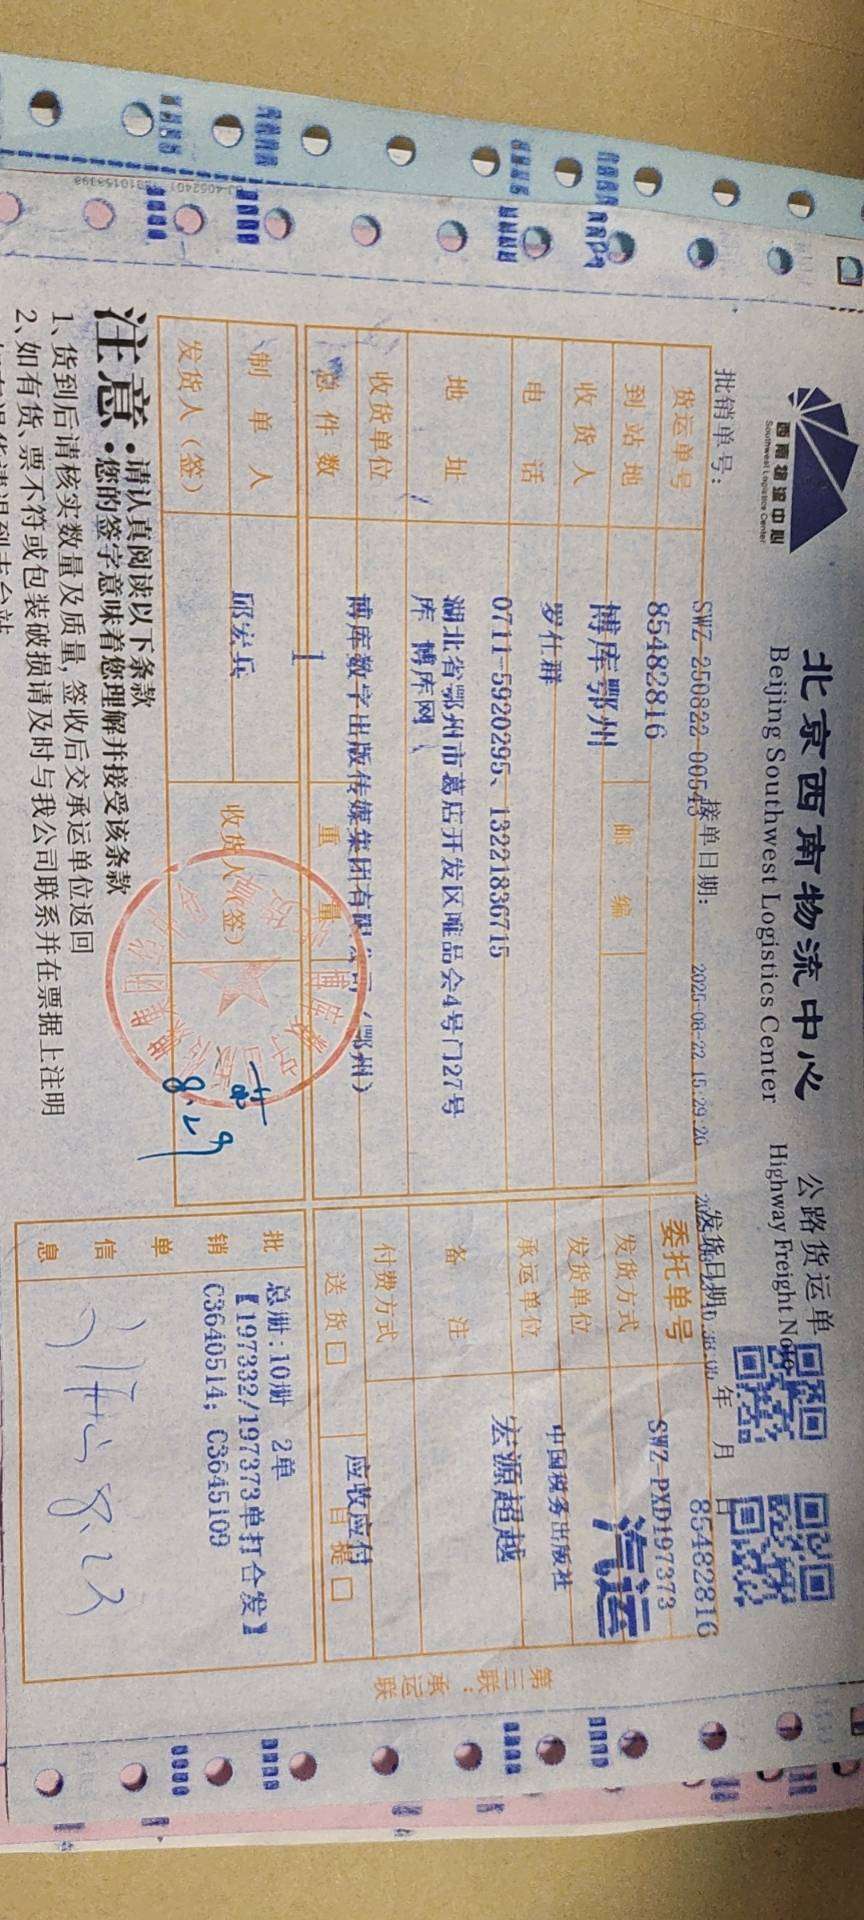 西南物流中心
Southwest Logistics Center
北京西南物流中心 公路货运单
Beijing Southwest Logistics Center Highway Freight Note
批销单号: SWZ-250822-00543 接单日期: 2025-08-22 15:29:26 发货日期: 年 月 日
货运单号 85482816 委托单号 SWZ-PXD197373 85482816
到站地 博库鄂州 邮编 发货方式 汽运
收货人 罗仕群 发货单位 中国税务出版社
电话 0711-5920295、13221836715 承运单位 宏源超越
地址 湖北省鄂州市葛店开发区唯品会4号门27号 备注
库 博库网
收货单位 博库数字出版传媒集团有限公司(鄂州) 付费方式 应收应付
总件数 1 重量 送货口 自提口
制单人 邱宏兵 收货人(签)
发货人(签) 8.29
批销单信息 总册:10册 2单
【197332/197373单打合发】
C3640514; C3645109
第三联:承运联
注意:·请认真阅读以下条款
·您的签字意味着您理解并接受该条款
1、货到后请核实数量及质量,签收后交承运单位返回
2、如有货、票不符或包装破损请及时与我公司联系并在票据上注明